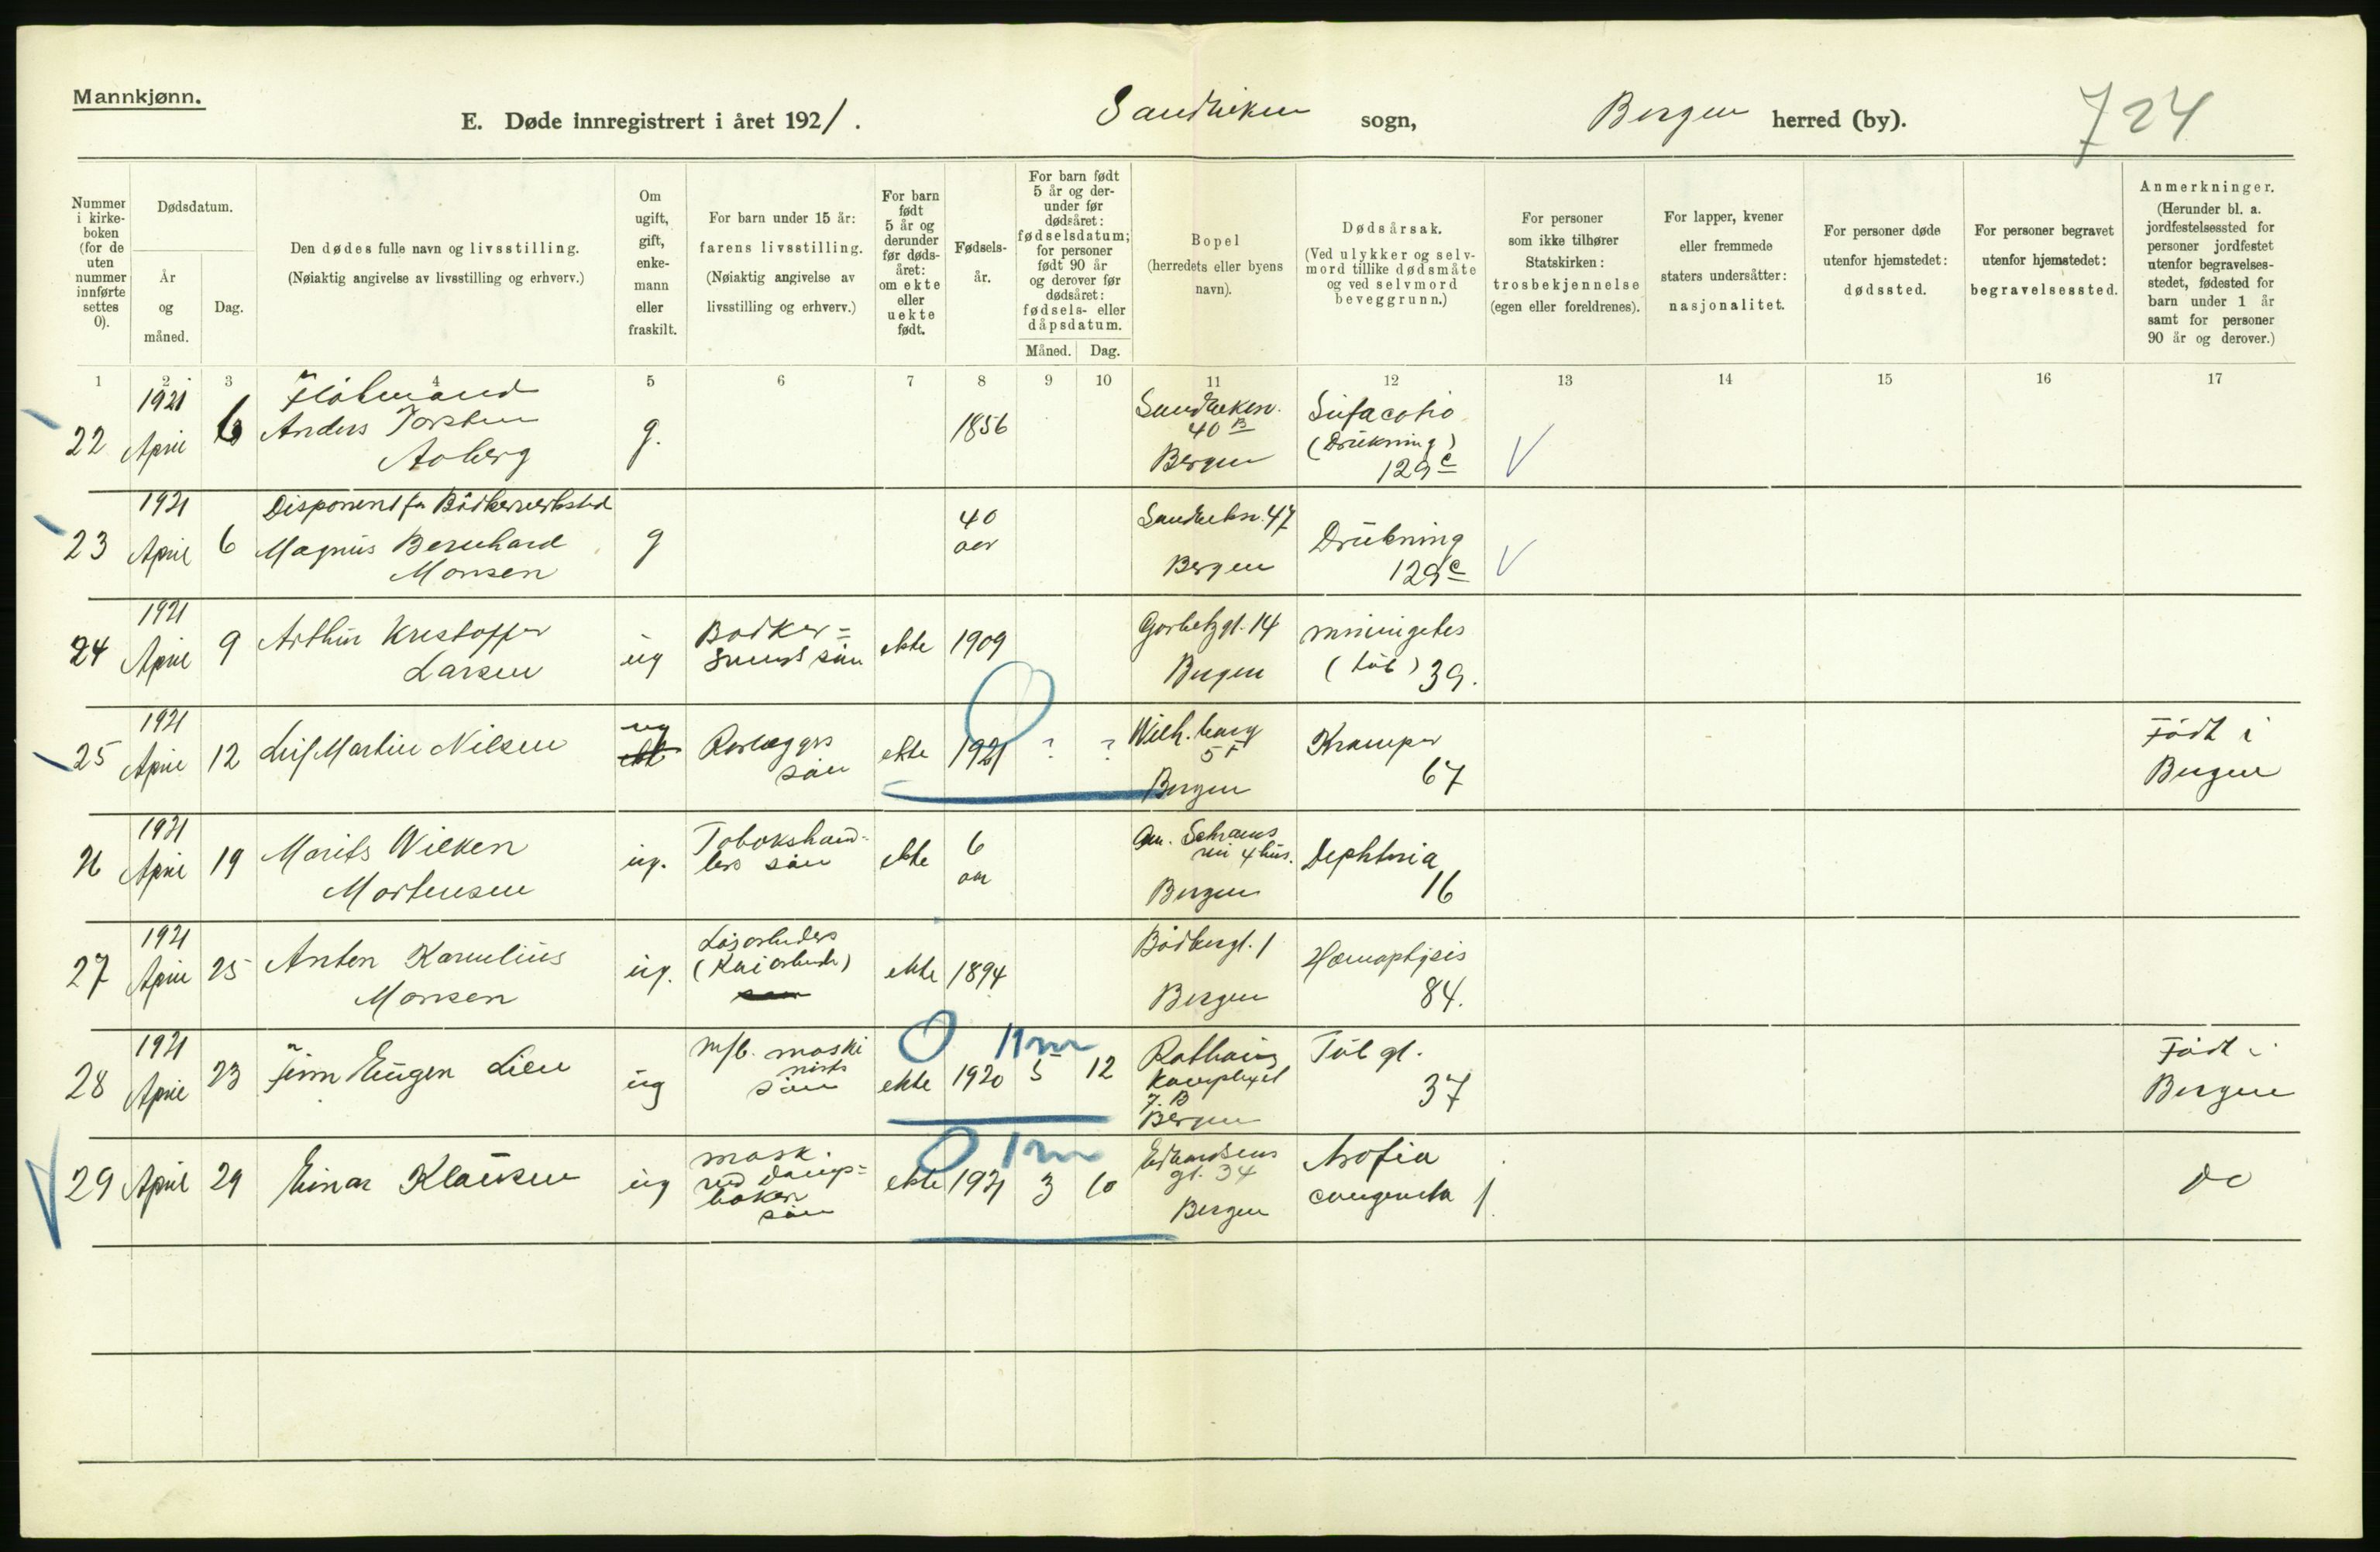 Mannkjønn.
E. Døde innregistrert i året 1921. Sandviken sogn, Bergen herred (by). 724
Nummer i kirkeboken (for de uten nummer innførte settes 0).
Dødsdatum.
År og måned.
Dag.
Den dødes fulle navn og livsstilling.
(Nøiaktig angivelse av livsstilling og erhverv.)
Om ugift, gift, enkemann eller fraskilt.
For barn under 15 år:
farens livsstilling.
(Nøiaktig angivelse av livsstilling og erhverv.)
For barn født 5 år og derunder før dødsåret: om ekte eller uekte født.
Fødselsår.
For barn født 5 år og derunder før dødsåret: fødselsdatum; for personer født 90 år og derover før dødsåret: fødsels- eller dåpsdatum.
Måned. Dag.
Bopel
(herredets eller byens navn).
Dødsårsak.
(Ved ulykker og selvmord tillike dødsmåte og ved selvmord beveggrunn.)
For personer som ikke tilhører Statskirken:
trosbekjennelse
(egen eller foreldrenes).
For lapper, kvener eller fremmede staters undersåtter:
nasjonalitet.
For personer døde utenfor hjemstedet:
dødssted.
For personer begravet utenfor hjemstedet:
begravelsessted.
Anmerkninger.
(Herunder bl. a. jordfestelsessted for personer jordfestet utenfor begravelsesstedet, fødested for barn under 1 år samt for personer 90 år og derover.)
1 2 3 4 5 6 7 8 9 10 11 12 13 14 15 16 17
22 1921 April 6 Flötmand
Anders Torsten
Aaberg g. 1856 Sandviksv.
40 B
Bergen Sufacatio
(Drukning)
129 c
23 1921 April 6 Disponent for Bödkerverksted
Magnus Bernhard
Monsen g 40
aar Sandviksv. 47
Bergen Drukning
129 c
24 1921 April 9 Arthur Kristoffer
Larsen ug Bödker=
svends sön ekte 1909 14
Bergen miningites
(tub) 39.
25 1921 April 12 Leif Martin Nilsen ug Rörlæggers
sön ekte 1921 ? ? Wilh.
Bergen Kramper
67 Födt i
Bergen
26 1921 April 19 Morits Wilken
Mortensen ug. Tobakshand=
lers sön ekte 6
aar 4 hus.
Bergen Dephteria
16
27 1921 April 25 Anton Kornelius
Monsen ug. Lösarbeiders
(Kaiarbeider) ekte 1894 Bödkergt. 1
Bergen Hæmoptysis
84.
28 1921 April 23 Finn Eugen Lien ug m/b. maski
nists
sön ekte 1920 5 12 11 m
Rothaug
komplexet
7. B
Bergen Tub gl.
37 Födt i
Bergen
29 April 29 Einar Klausen ug mask.
ved damp=
sön ekte 1921 3 10 1 m
Edvardsens
gt. 34
Bergen Arofia
congenita 1. Do